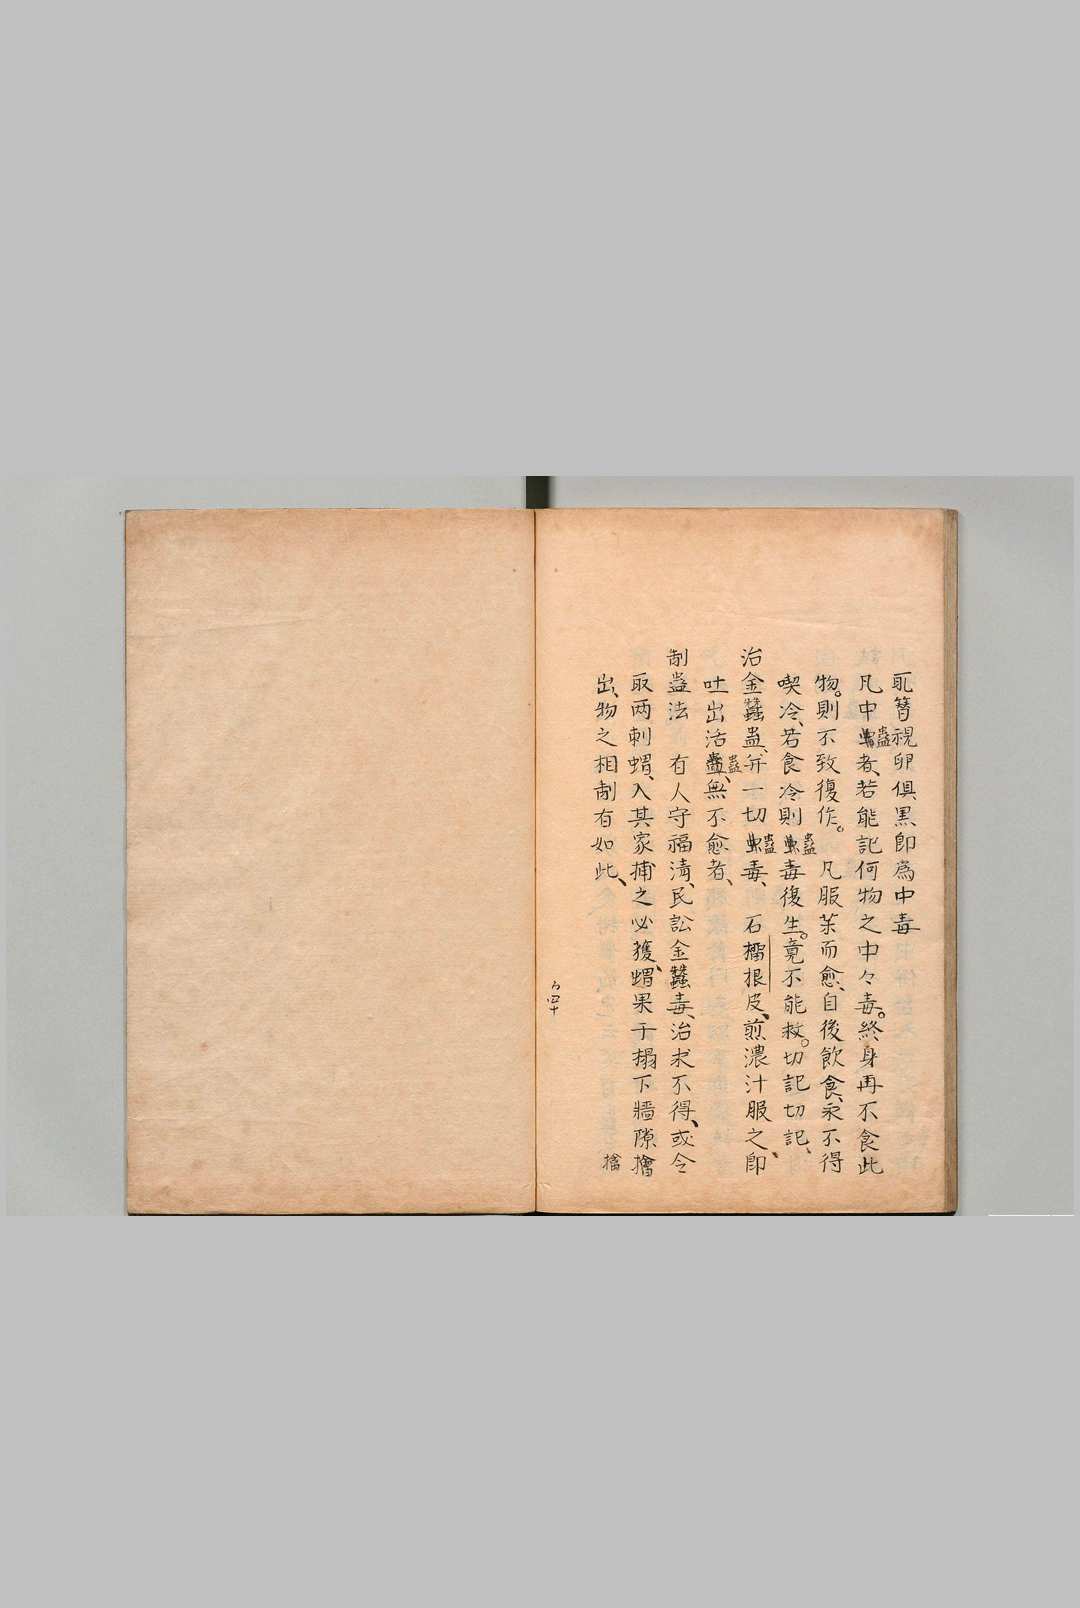 取簪視卵俱黒即爲中毒
凡中蠱者、若能記何物之中々毒。終身再不食此
物。則不致復作。凡服茱而愈、自後飲食、永不得
喫冷、若食冷則蠱毒復生。竟不能救。切記切記、
治金蠶蠱、并一切蠱毒、石橊根皮、煎濃汁服之、即
吐出活蠱無不愈者、
制蠱法　有人守福清、民訟金蠶毒、治求不得、或令
取两刺蝟、入其家捕之必獲、蝟果于榻下牆隙擒
出、物之相制有如此、
四十
擒